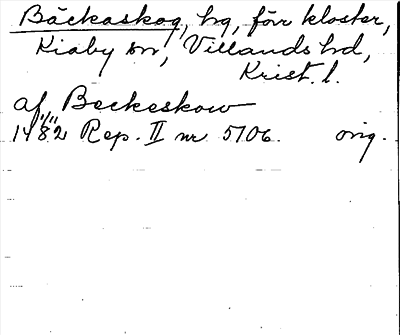 Bäckaskog, hg, förr kloster,
Kiaby sn, Villands hd,
Krist. l.
af Beckeskow
1482 11/11 Rep. II nr 5106. orig.